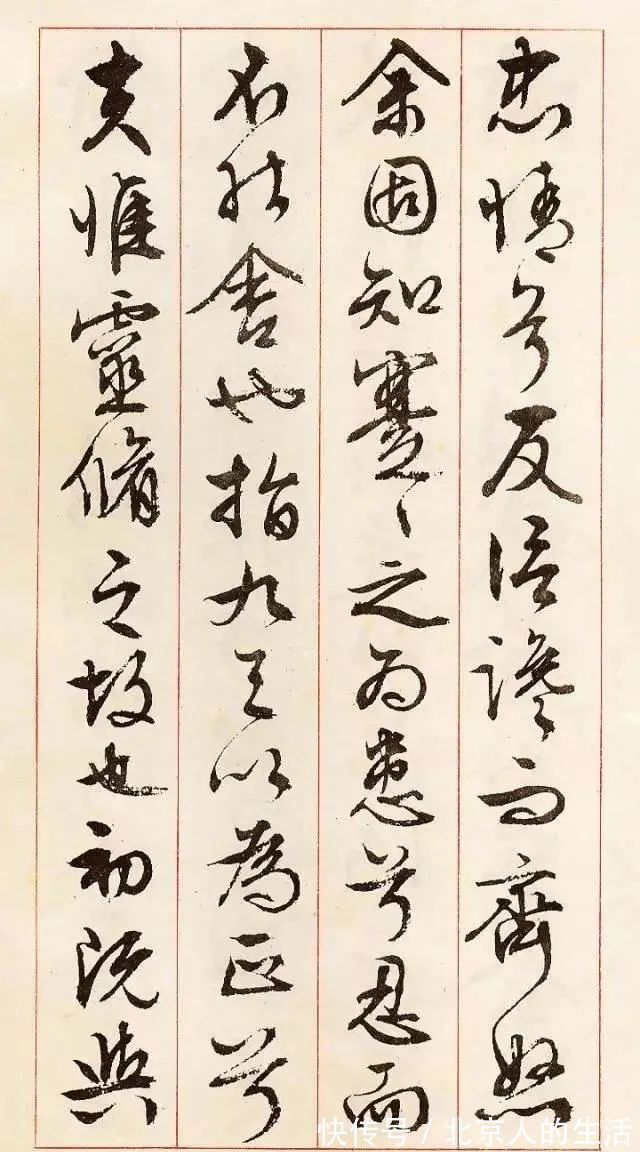 忠情兮反信讒而齊怒
余固知謇々之為患兮忍而
不能舍也指九天以為正兮
夫惟靈脩之故也初既與
快传号/北京人的生活